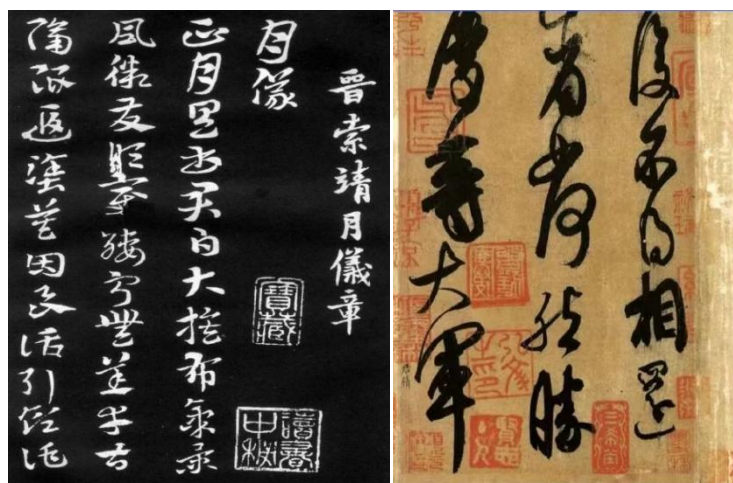 晉索靖月儀章
月儀
正月具書君白大蔟布氣景
風微發順變綏寧無恙幸甚
隔限遐塗莫因良話引領託
寶藏
復不得相還
省如何然勝
慶等大軍